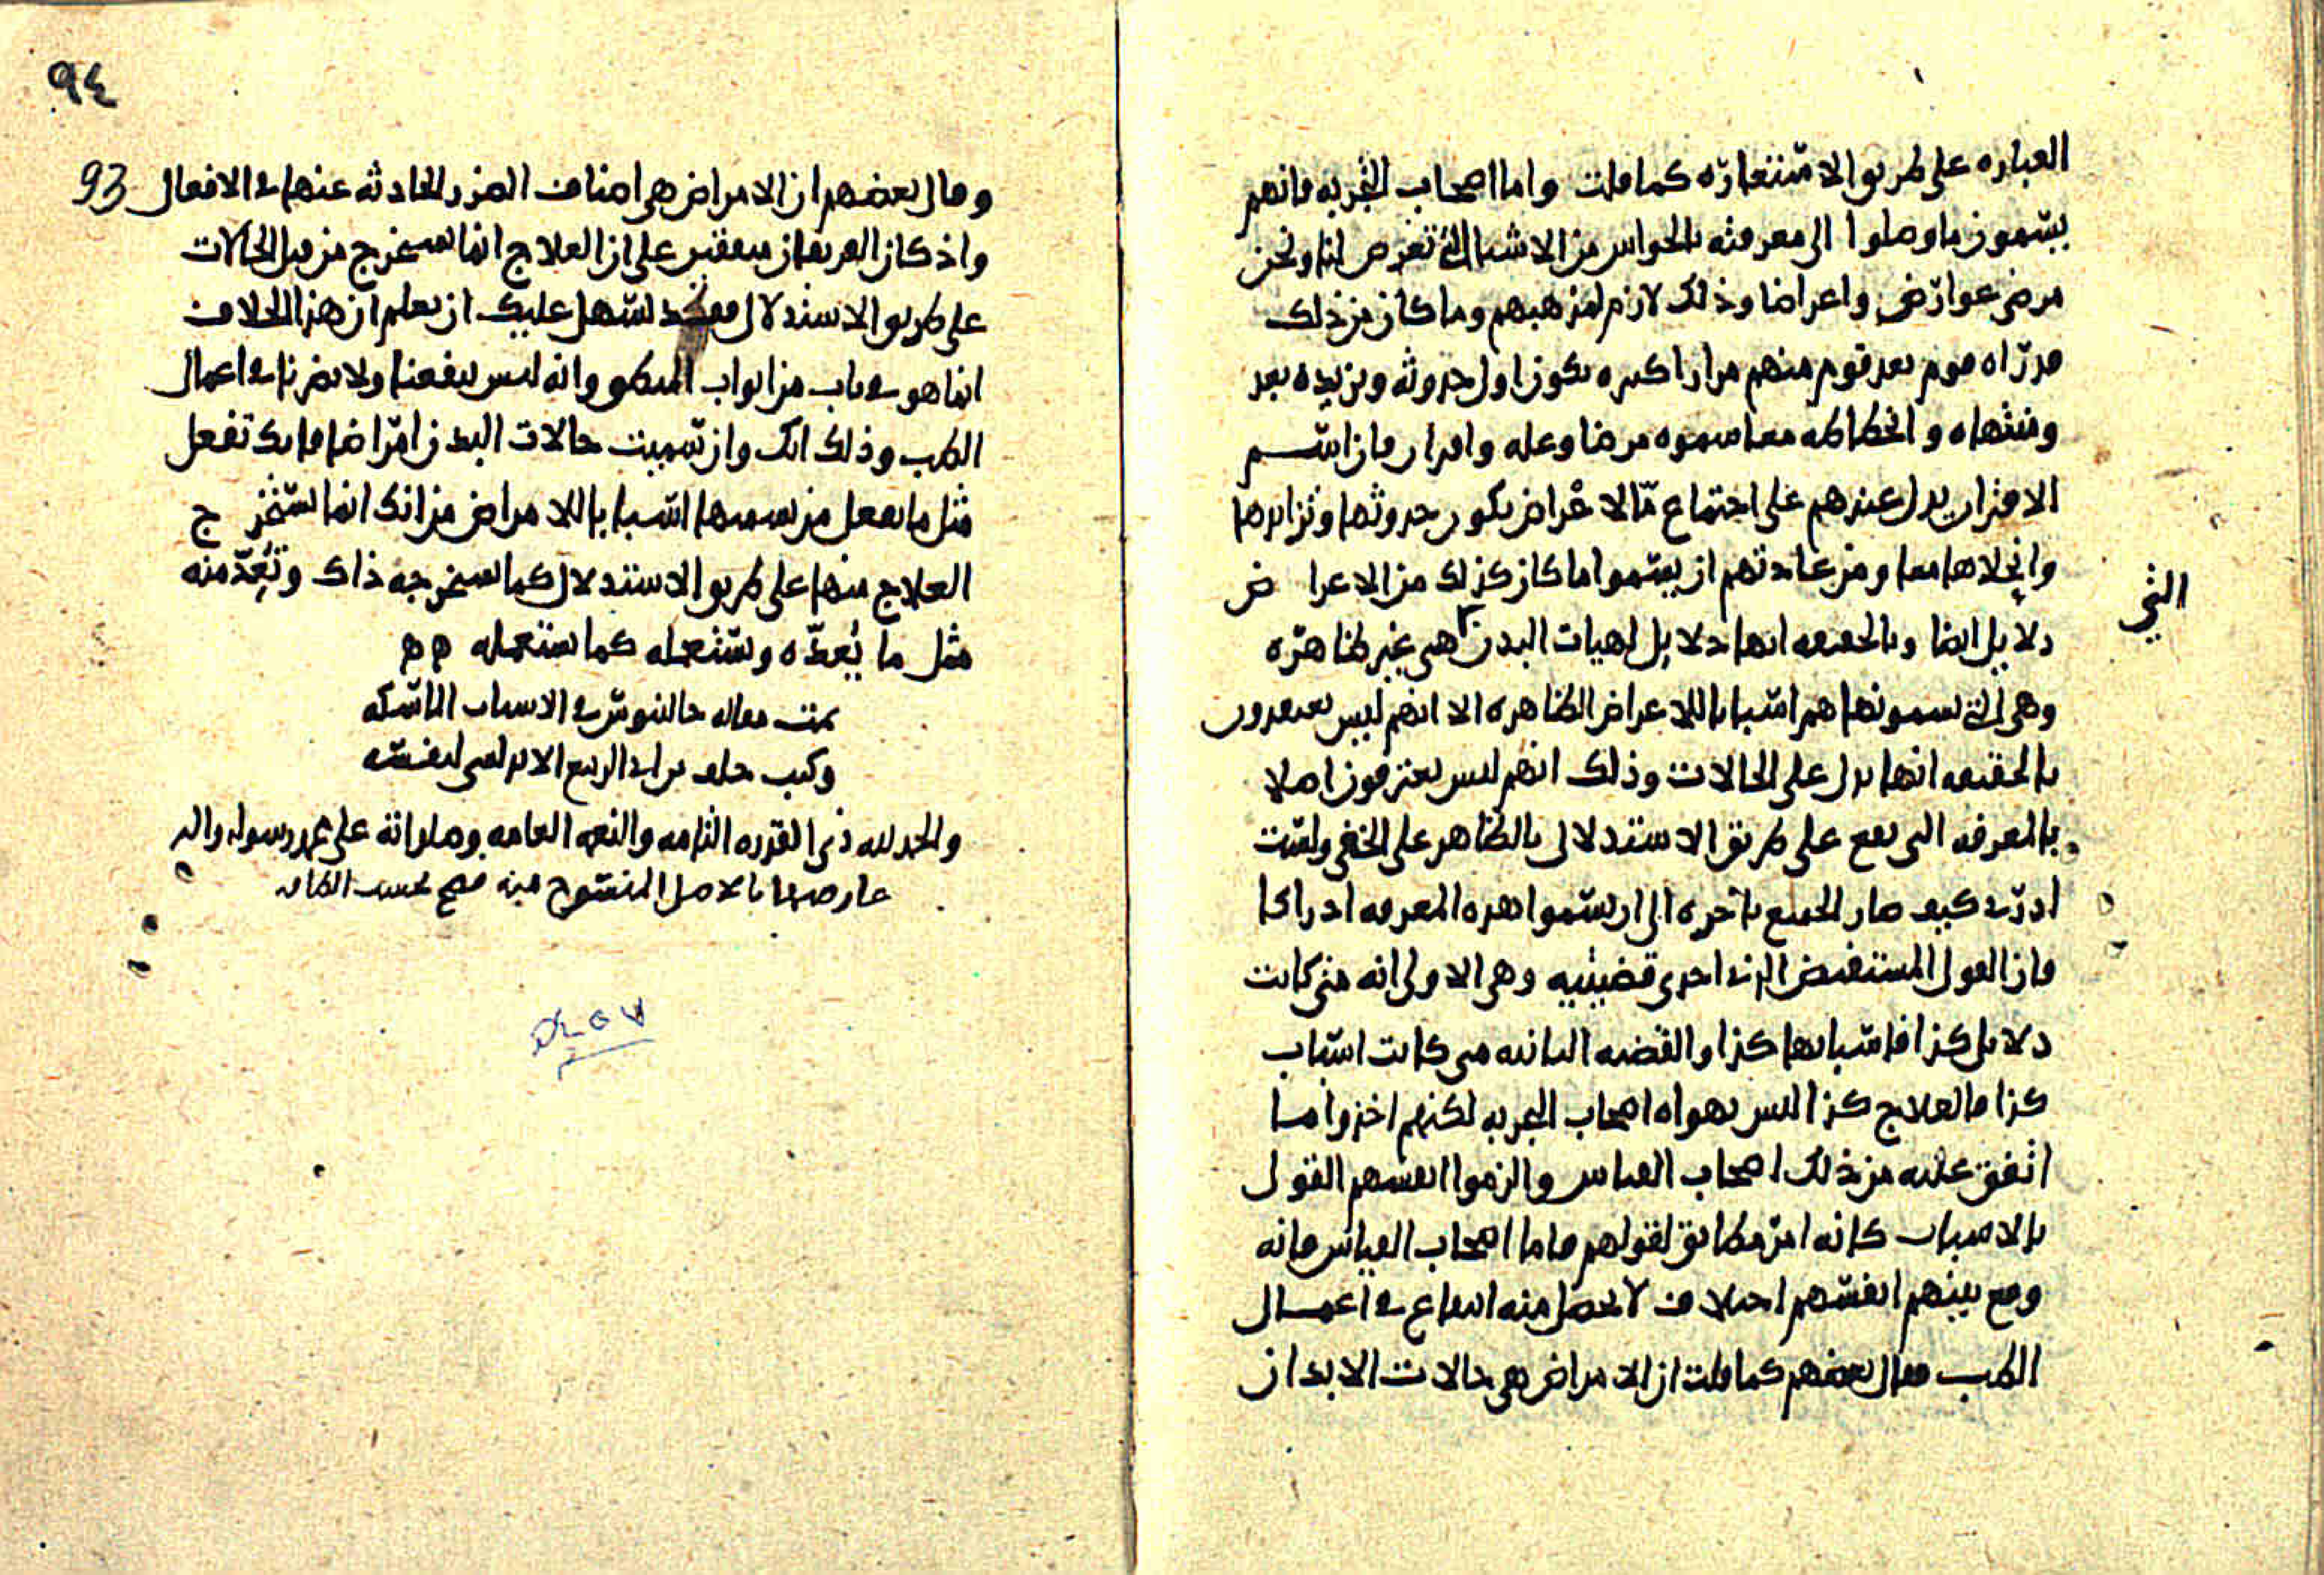 العباره على طريق الاستعاره كما قلت واما اصحاب التجربه فانهم
يسمون ما وصلوا الى معرفته بالحواس من الاشيا التي تعرض لنا ونحن
مرضى عوارض واعراضا وذلك لازم لمذهبهم وما كان من ذلك
قد راه قوم بعد قوم منهم مرارا كثيره يكون اول حدوثه وتزيده بعد
ومنتهاه وانحطاطه معا سموه مرضا وعله واقران فان اسم
الاقتران يدل عندهم على اجتماع ما الاعراض يكون حدوثها وتزايدها
وانحلالها معا ومن عادتهم ان يسموا ما كان كذلك من الاعراض
التي
دلايل ايضا وبالحقيقه انها دلايل لهيات البدن هي غير ظاهره
وهي التي يسمونها هم اسبابا للاعراض الظاهره الا انهم ليس يعتقدون
بالحقيقه انها تدل على الحالات وذلك انهم ليس يعترفون اصلا
بالمعرفه التي تقع على طريق الاستدلال بالظاهر على الخفي ولست
ادري كيف صار الجميع باخره الى ان يسموا هذه المعرفه ادراكا
فان القول المستفيض الذي احدى قضيتيه وهي الاولى انه متى كانت
دلايل كذا فاسبابها كذا والقضيه الثانيه متى كانت اسباب
كذا فالعلاج كذا ليس يهواه اصحاب التجربه لكنهم اخذوا ما
اتفق عليه من ذلك اصحاب القياس والزموا انفسهم القول
بالاسباب كانه امر مطابق لقولهم فاما اصحاب القياس فانه
وقع بينهم انفسهم اختلاف لا يحصل منه انتفاع في اعمال
الطب فقال بعضهم كما قلت ان الامراض هي حالات الابدان
٩٤
93
وقال بعضهم ان الامراض هي اصناف الضرر الحادثه عنها في الافعال
واذ كان الفريقان متفقين على ان العلاج انما يستخرج من قبل الحالات
على طريق الاستدلال فقد يسهل عليك ان تعلم ان هذا الخلاف
انما هو في باب من ابواب المنطق وانه ليس ينفعنا ولا يضرنا في اعمال
الطب وذلك انك وان سميت حالات البدن امراضا فانك تفعل
مثل ما يفعل من يسميها اسبابا للامراض من انك انما تستخرج
العلاج منها على طريق الاستدلال كما يستخرجه ذاك وتعد منه
مثل ما يعده وتستعمله كما يستعمله ه ه
تمت مقاله جالينوس في الاسباب الماسكه
وكتب خلف بن ابي الربيع لنفسه
والحمد لله ذي القدره التامه والنعمه العامه وصلواته على محمد رسوله واله
عارضها بالاصل المنسوخ منه فصح بحسب الطاقه